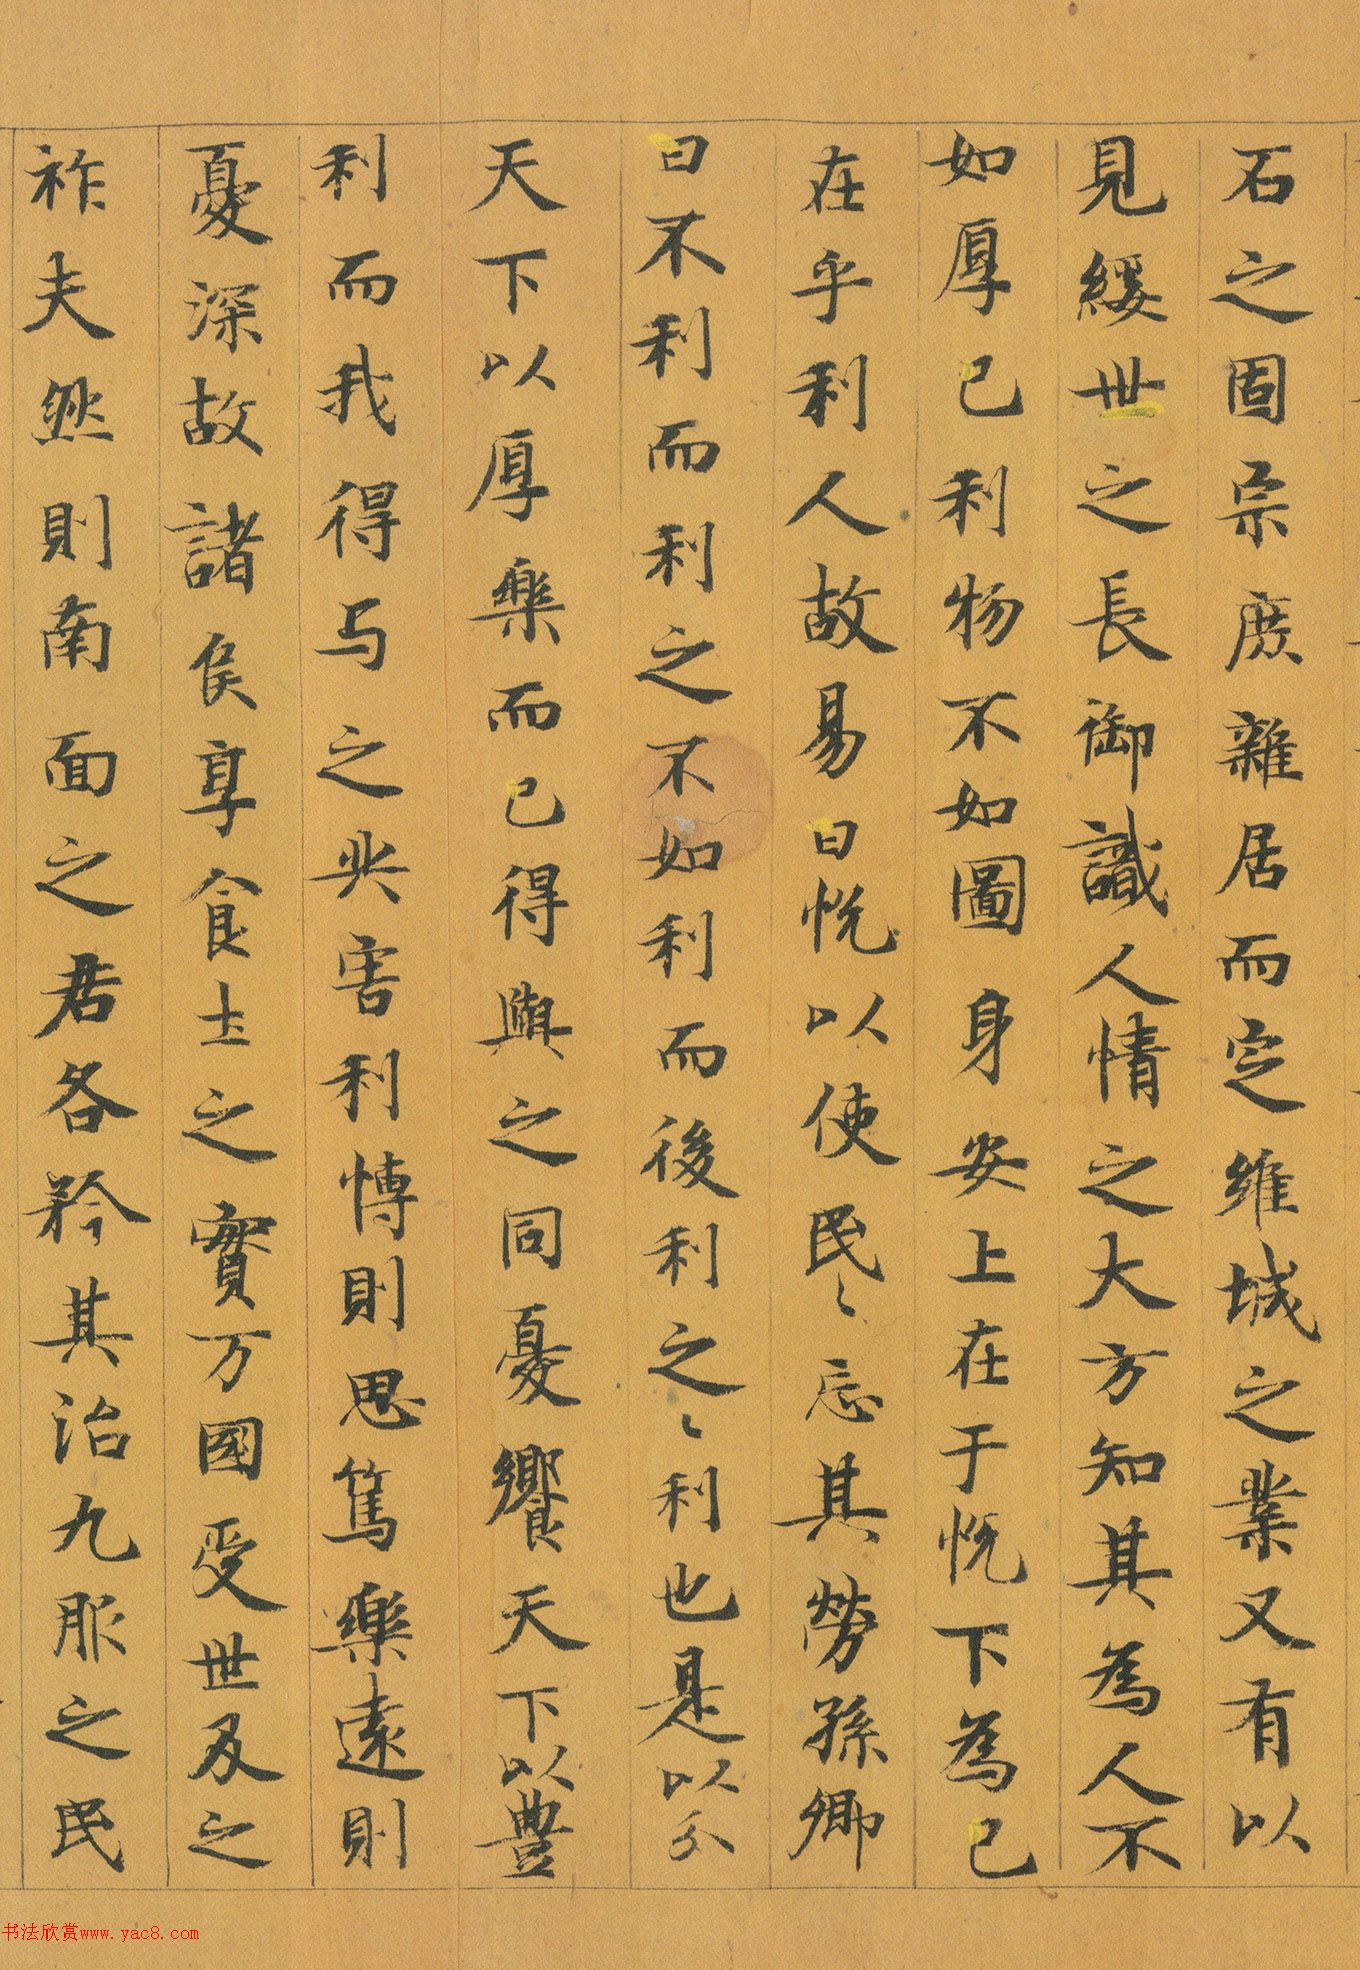 石之固宗庶雜居而定維城之業又有以
見綏世之長御識人情之大方知其為人不
如厚己利物不如圖身安上在于悅下為己
在乎利人故易曰悅以使民〻忘其勞孫卿
曰不利而利之不如利而後利之〻利也是以分
天下以厚樂而己得與之同憂饗天下以豐
利而我得与之共害利博則思篤樂遠則
憂深故諸侯享食土之實万國受世及之
祚夫然則南面之君各矜其治九服之民
书法欣赏www.yac8.com